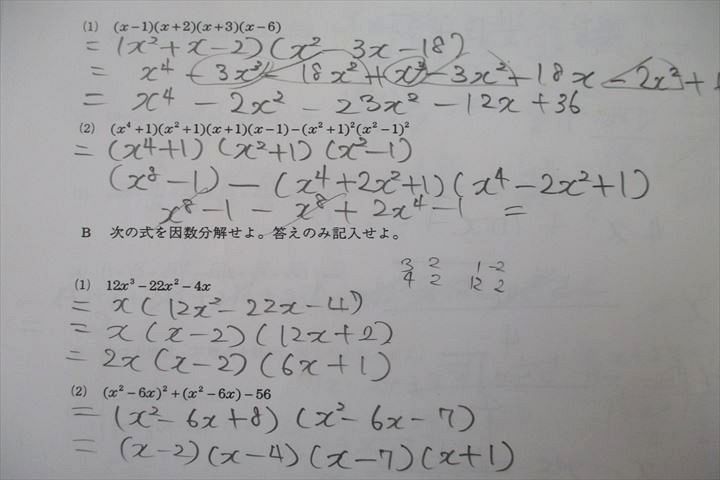 (1) (x-1)(x+2)(x+3)(x-6)
= (x²+x-2)(x²-3x-18)
= x⁴ - 3x³ - 18x² + x³ - 3x² - 18x - 2x² +
= x⁴ - 2x² - 23x² - 12x + 36
(2) (x⁴+1)(x²+1)(x+1)(x-1)-(x²+1)²(x²-1)²
= (x⁴+1)(x²+1)(x²-1)
(x⁸-1) - (x⁴+2x²+1)(x⁴-2x²+1)
x⁸-1 - x⁸+2x⁴-1 =
B 次の式を因数分解せよ。答えのみ記入せよ。
3 2 1 -2
4 2 12 2
(1) 12x³-22x²-4x
= x(12x²-22x-4)
= x(x-2)(12x+2)
= 2x(x-2)(6x+1)
(2) (x²-6x)²+(x²-6x)-56
= (x²-6x+8)(x²-6x-7)
= (x-2)(x-4)(x-7)(x+1)